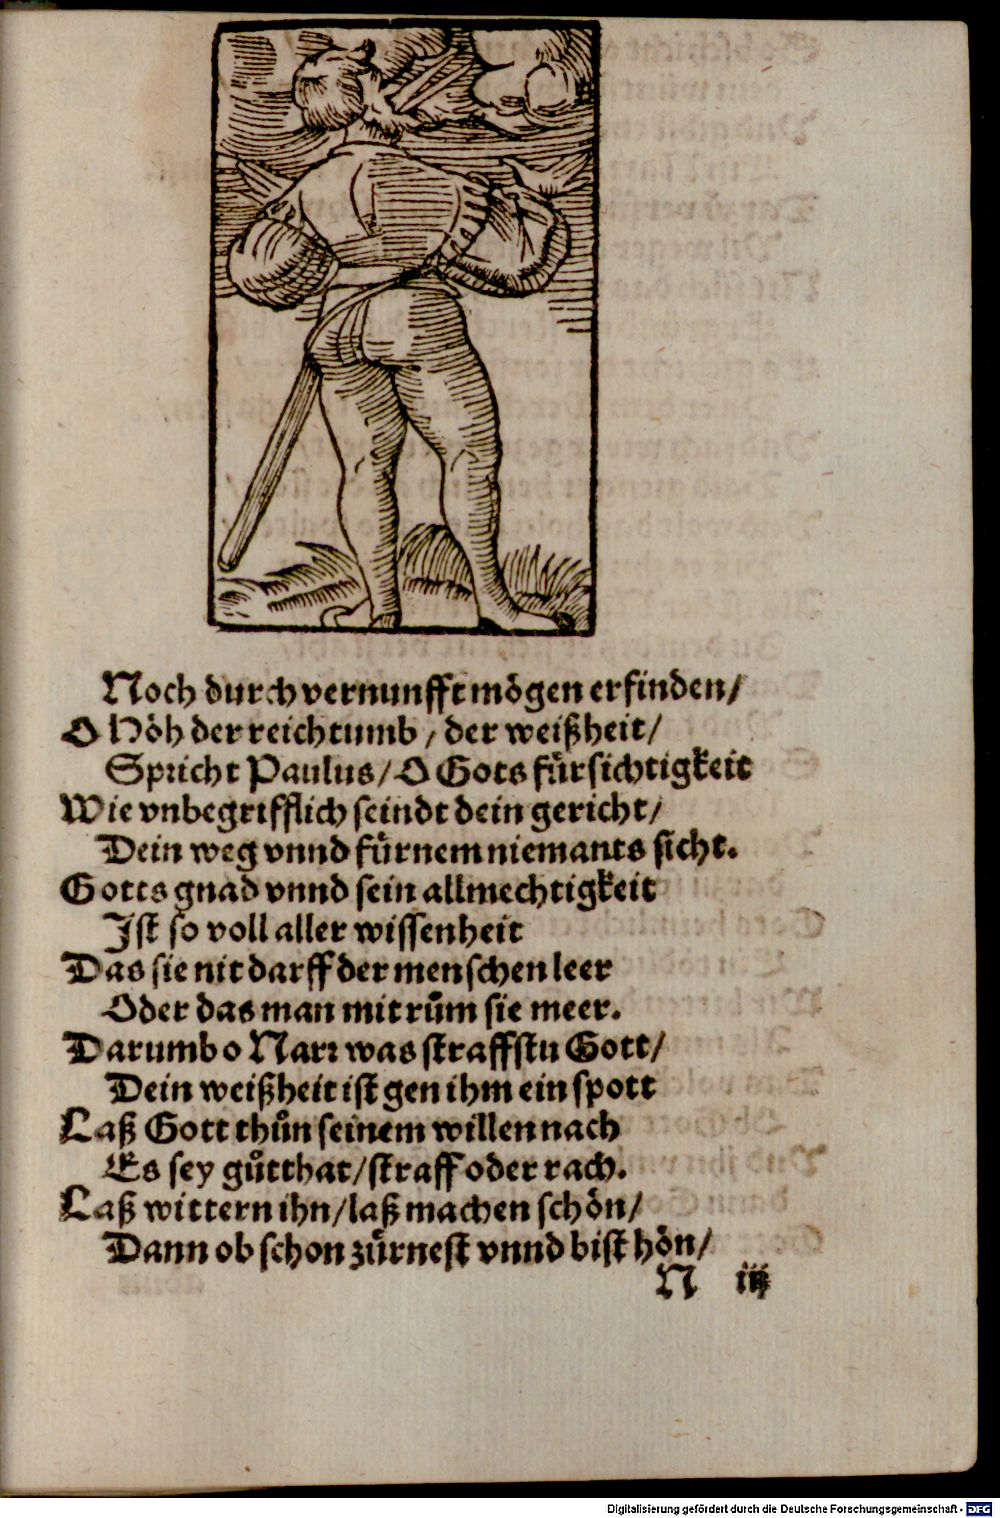 Noch durch vernunfft mögen erfinden/
O Höh der reichtumb / der weißheit/
Spricht Paulus/ O Gots fürsichtigkeit
Wie vnbegrifflich seindt dein gericht/
Dein weg vnnd fürnem niemants sicht.
Gotts gnad vnnd sein allmechtigkeit
Ist so voll aller wissenheit
Das sie nit darff der menschen leer
Oder das man mit rům sie meer.
Darumb o Narr was straffstu Gott/
Dein weißheit ist gen ihm ein spott
Laß Gott thůn seinem willen nach
Es sey gůtthat/ straff oder rach.
Laß wittern ihn/ laß machen schön/
Dann ob schon zürnest vnnd bist hön/
N iij
Digitalisierung gefördert durch die Deutsche Forschungsgemeinschaft - DFG